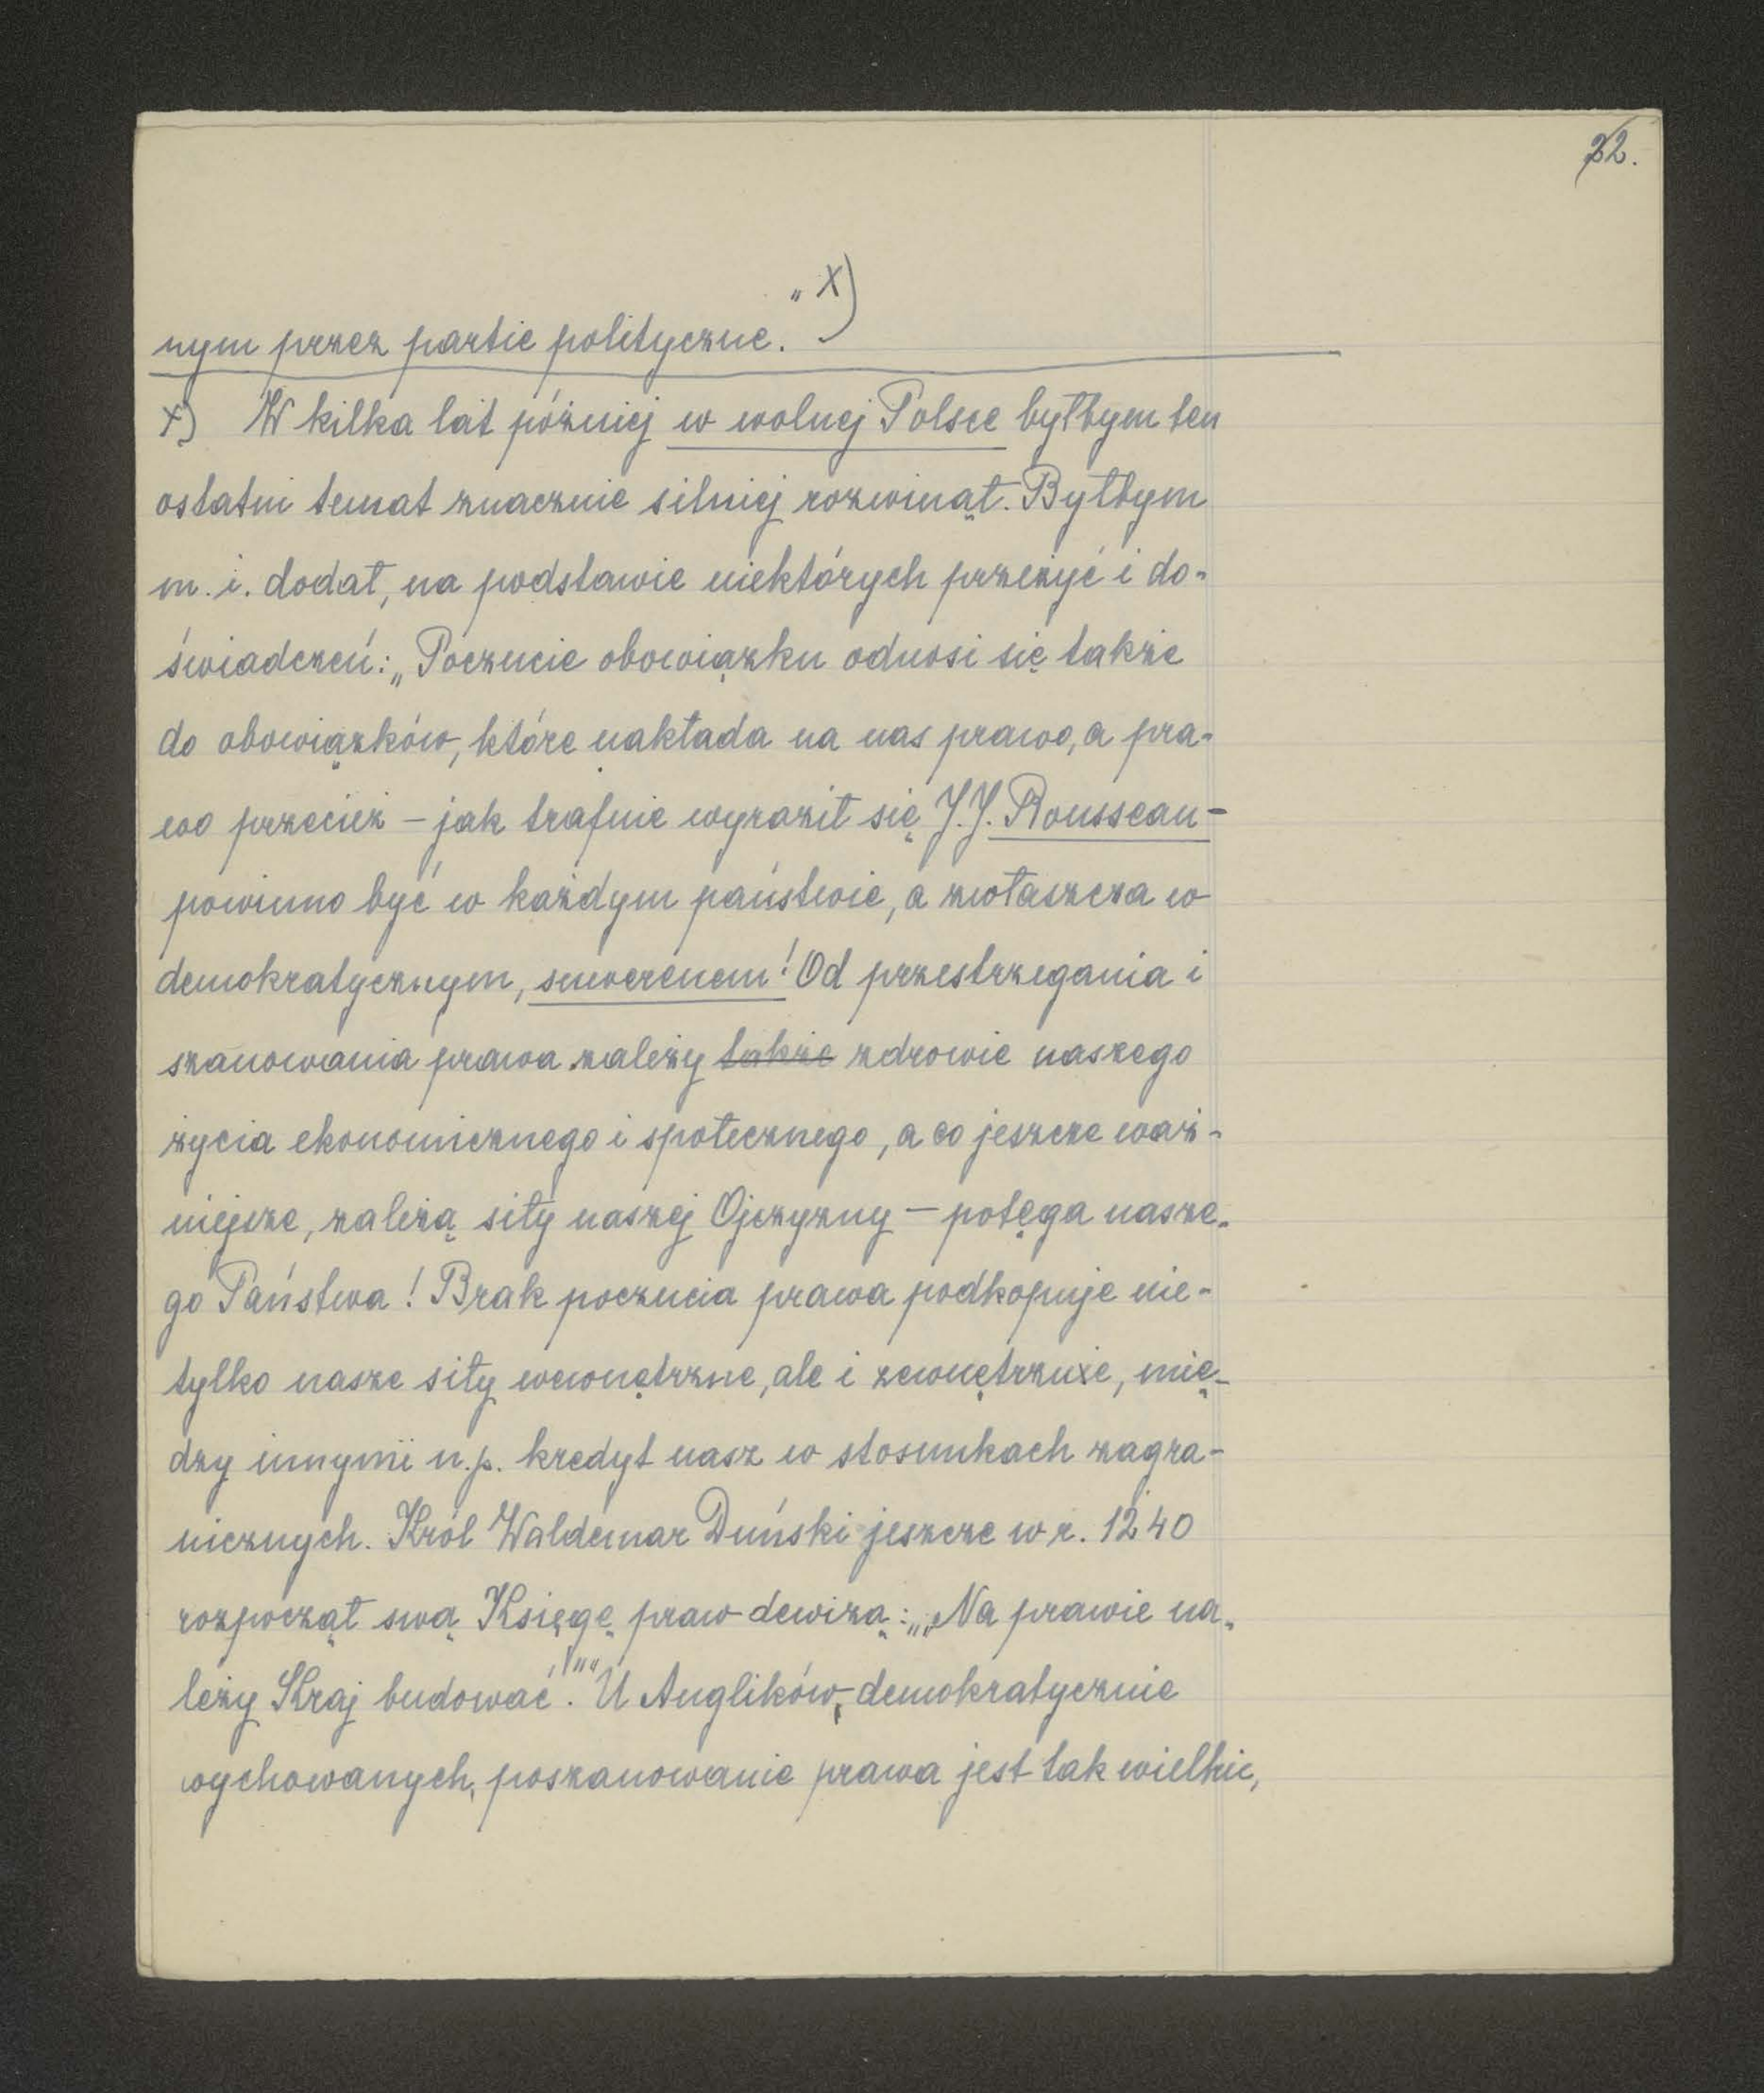 22.
nym przez partie polityczne." x)
x) W kilka lat później w wolnej Polsce byłbym ten
ostatni temat znacznie silniej rozwinął. Byłbym
m. i. dodał, na podstawie niektórych przeżyć i do-
świadczeń: „Poczucie obowiązku odnosi się także
do obowiązków, które nakłada na nas prawo, a pra-
wo przecież – jak trafnie wyraził się J. J. Rousseau –
powinno być w każdym państwie, a zwłaszcza w
demokratycznym, suwerenem! Od przestrzegania i
szanowania prawa zależy także zdrowie naszego
życia ekonomicznego i społecznego, a co jeszcze waż-
niejsze, zależą siły naszej Ojczyzny – potęga nasze-
go Państwa! Brak poczucia prawa podkopuje nie-
tylko nasze siły wewnętrzne, ale i zewnętrzne, mię-
dzy innymi n.p. kredyt nasz w stosunkach zagra-
nicznych. Król Waldemar Duński jeszcze w r. 1240
rozpoczął swą Księgę praw dewizą: „„Na prawie na-
leży Kraj budować!"" U Anglików, demokratycznie
wychowanych, poszanowanie prawa jest tak wielkie,